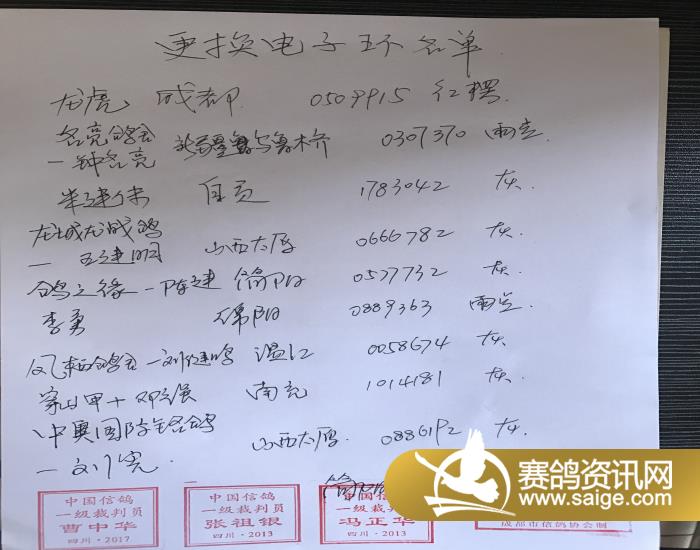 更换电子环名单
龙虎 成都 0509915 红楞
名亮鸽舍
一钟名亮 新疆乌鲁木齐 0307370 雨点
朱建 自贡 1783042 灰
龙城龙战鸽
一 王建明 山西太原 0666782 灰
鸽之缘一陈建 简阳 0577732 灰
李勇 绵阳 0889363 雨点
凤 鸽舍一刘建鸣 温江 0058674 灰
甲十邓强 南充 1014181 灰
中奥国际铭鸽 山西太原 0886192 灰
一刘宪
中国信鸽
一级裁判员
曹中华
四川·2017
中国信鸽
一级裁判员
张祖银
四川·2013
中国信鸽
一级裁判员
冯正华
四川·2013
成都市信鸽协会制
赛鸽资讯网
www.saige.com